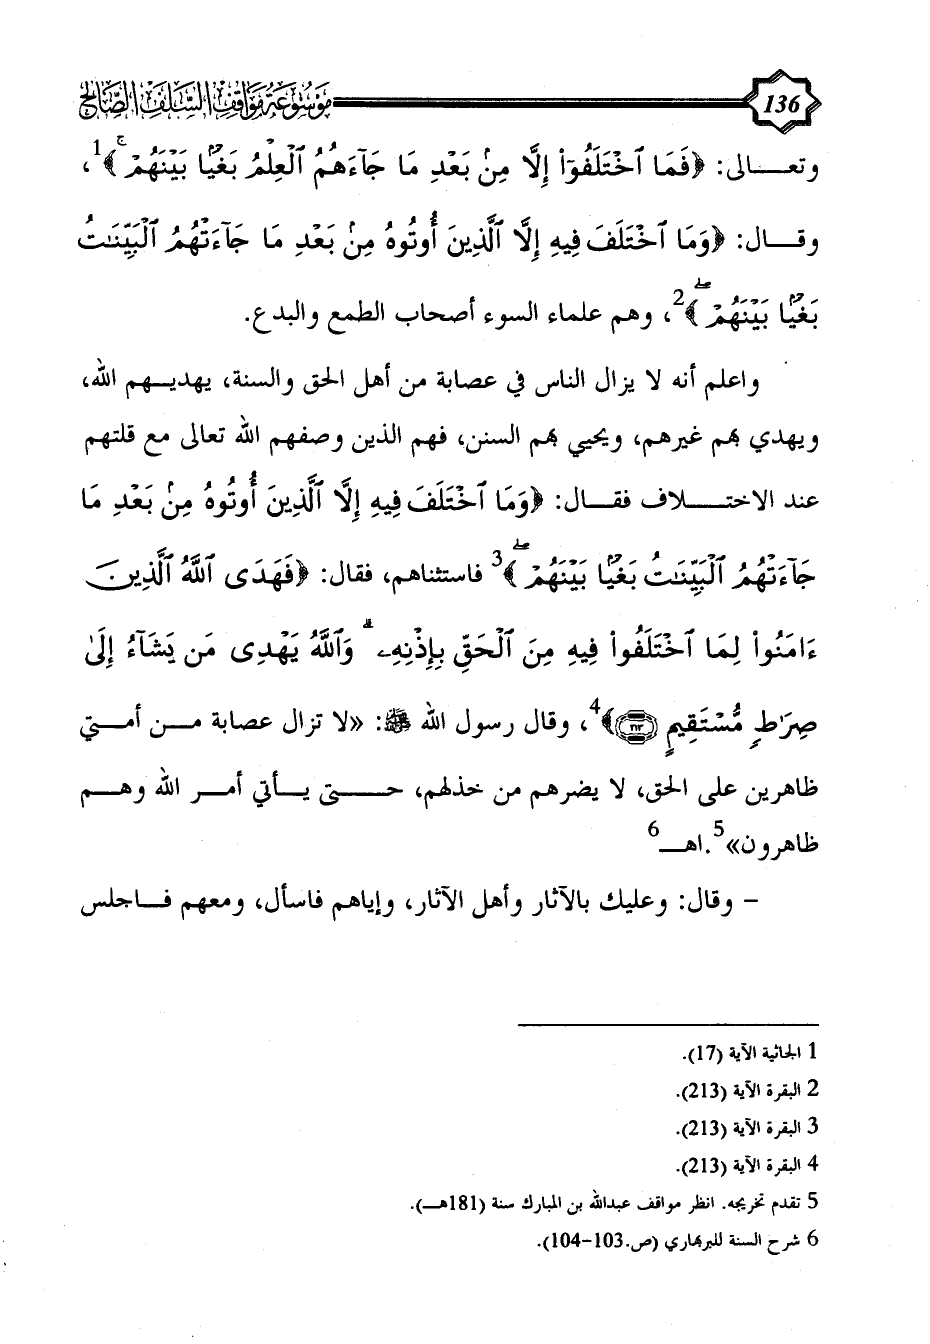 موسوعة مواقف السلف الصالح 136
وتعالى: ﴿فَمَا ٱخْتَلَفُوٓا۟ إِلَّا مِنۢ بَعْدِ مَا جَآءَهُمُ ٱلْعِلْمُ بَغْيًۢا بَيْنَهُمْ ۚ﴾1،
وقال: ﴿وَمَا ٱخْتَلَفَ فِيهِ إِلَّا ٱلَّذِينَ أُوتُوهُ مِنۢ بَعْدِ مَا جَآءَتْهُمُ ٱلْبَيِّنَٰتُ
بَغْيًۢا بَيْنَهُمْ ۖ﴾2، وهم علماء السوء أصحاب الطمع والبدع.
واعلم أنه لا يزال الناس في عصابة من أهل الحق والسنة، يهديهم الله،
ويهدي بهم غيرهم، ويحيي بهم السنن، فهم الذين وصفهم الله تعالى مع قلتهم
عند الاختلاف فقال: ﴿وَمَا ٱخْتَلَفَ فِيهِ إِلَّا ٱلَّذِينَ أُوتُوهُ مِنۢ بَعْدِ مَا
جَآءَتْهُمُ ٱلْبَيِّنَٰتُ بَغْيًۢا بَيْنَهُمْ ۖ﴾3 فاستثناهم، فقال: ﴿فَهَدَى ٱللَّهُ ٱلَّذِينَ
ءَامَنُوا۟ لِمَا ٱخْتَلَفُوا۟ فِيهِ مِنَ ٱلْحَقِّ بِإِذْنِهِۦ ۗ وَٱللَّهُ يَهْدِى مَن يَشَآءُ إِلَىٰ
صِرَٰطٍ مُّسْتَقِيمٍ ﴿٢١٣﴾﴾4، وقال رسول الله ﷺ: «لا تزال عصابة من أمتي
ظاهرين على الحق، لا يضرهم من خذلهم، حتى يأتي أمر الله وهم
ظاهرون»5.اهـ6
- وقال: وعليك بالآثار وأهل الآثار، وإياهم فاسأل، ومعهم فاجلس
1 الجاثية الآية (17).
2 البقرة الآية (213).
3 البقرة الآية (213).
4 البقرة الآية (213).
5 تقدم تخريجه. انظر مواقف عبدالله بن المبارك سنة (181هـ).
6 شرح السنة للبربهاري (ص.103-104).